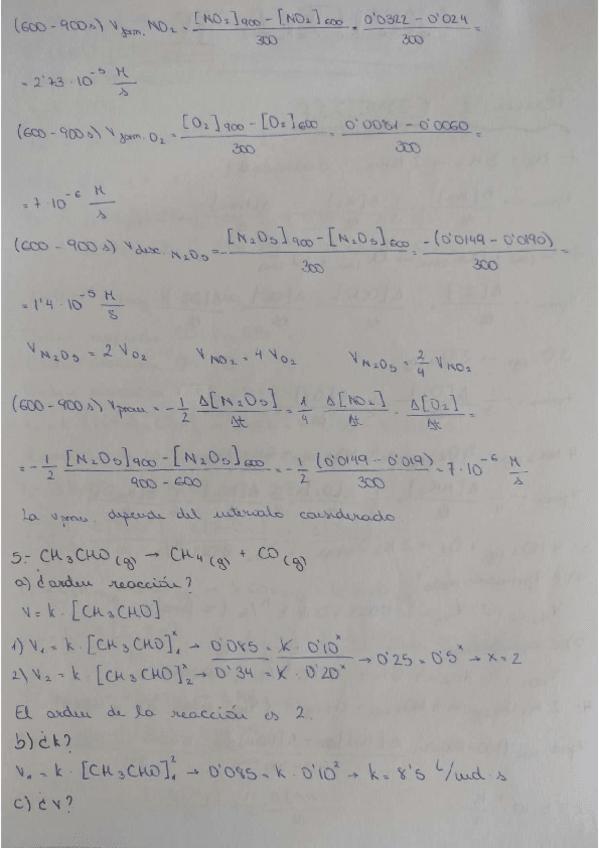 (600-900s) V form. NO₂ = [NO₂]900 - [NO₂]600 / 300 = 0'0322 - 0'024 / 300 =
= 2'73 · 10⁻⁵ M/s
(600-900s) V form. O₂ = [O₂]900 - [O₂]600 / 300 = 0'0081 - 0'0060 / 300 =
= 7 · 10⁻⁶ M/s
(600-900s) V desc. N₂O₅ = - [N₂O₅]900 - [N₂O₅]600 / 300 = -(0'0149 - 0'0190) / 300 =
= 1'4 · 10⁻⁵ M/s
V N₂O₅ = 2 V O₂ V NO₂ = 4 V O₂ V N₂O₅ = 2/4 V NO₂
(600-900s) V prom. = - 1/2 Δ[N₂O₅]/Δt = 1/4 Δ[NO₂]/Δt = Δ[O₂]/Δt =
= - 1/2 [N₂O₅]900 - [N₂O₅]600 / 900 - 600 = - 1/2 (0'0149 - 0'019) / 300 = 7 · 10⁻⁶ M/s
La V prom. depende del intervalo considerado
5.- CH₃CHO (g) → CH₄ (g) + CO (g)
a) ¿orden reacción?
V = k · [CH₃CHO]
1) V₁ = k · [CH₃CHO]₁ˣ → 0'085 = k · 0'10ˣ
2) V₂ = k · [CH₃CHO]₂ˣ → 0'34 = k · 0'20ˣ → 0'25 = 0'5ˣ → x = 2
El orden de la reacción es 2.
b) ¿k?
V₁ = k · [CH₃CHO]₁² → 0'085 = k · 0'10² → k = 8'5 L/mol · s
c) ¿v?